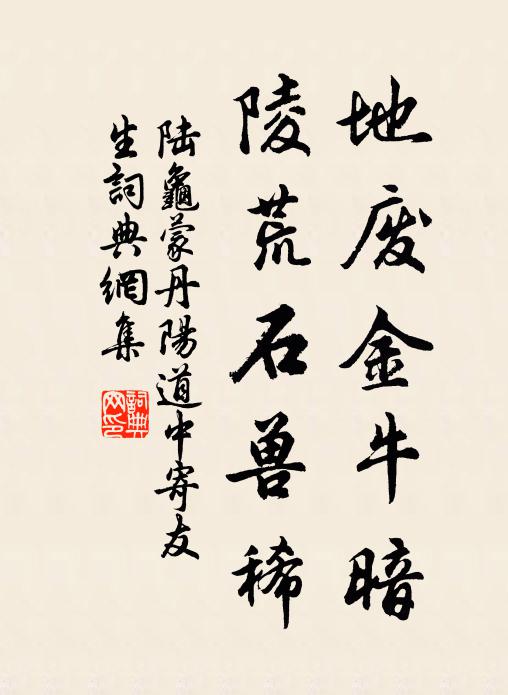 地废金牛暗
陵荒石兽稀
陆龜蒙丹陽道中寄友
生詞典網集
詞典
网印